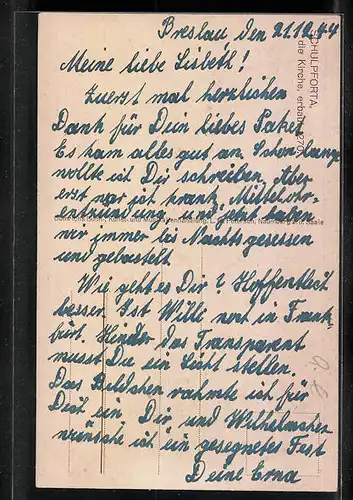 Breslau den 21.12.44
Meine liebe Lisbeth!
Zuerst mal herzlichen
Dank für Dein liebes Paket
Es kam alles gut an Schon lange
wollte ich Dir schreiben, Aber
erst war ich krank, Mittelohr-
entzündung, und jetzt haben
wir immer bis Nachts gesessen
und gebastelt
Wie geht es Dir? Hoffentlich
besser. Ist Willi noch in Frank-
furt. Hinder das Transparent
musst Du ein Licht stellen.
Das Bildchen rahmte ich für
Dich ein Dir und Wilhelmchen
wünsche ich ein gesegnetes Fest
Deine Erna
SCHULPFORTA.
die Kirche, erbaut 1270
Naumburg a. d. Saale